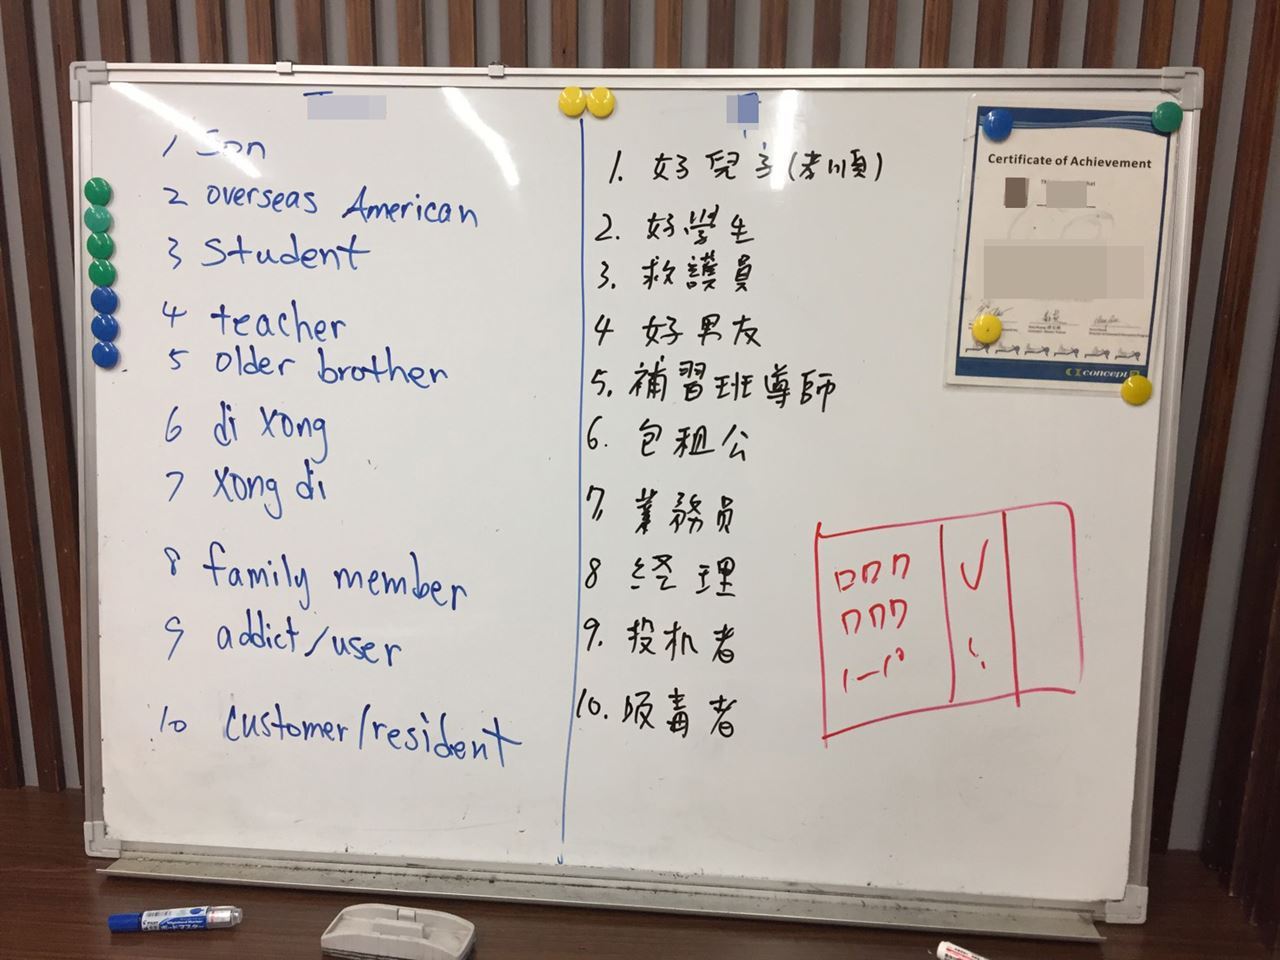 1 Son
2 overseas American
3 student
4 teacher
5 older brother
6 di xong
7 xong di
8 family member
9 addict/user
10 customer/resident
1. 好兒子(孝順)
2. 好學生
3. 救護員
4 好男友
5. 補習班導師
6. 包租公
7, 業務員
8 経理
9. 投机者
10. 吸毒者
1-10
Certificate of Achievement
CI concept2